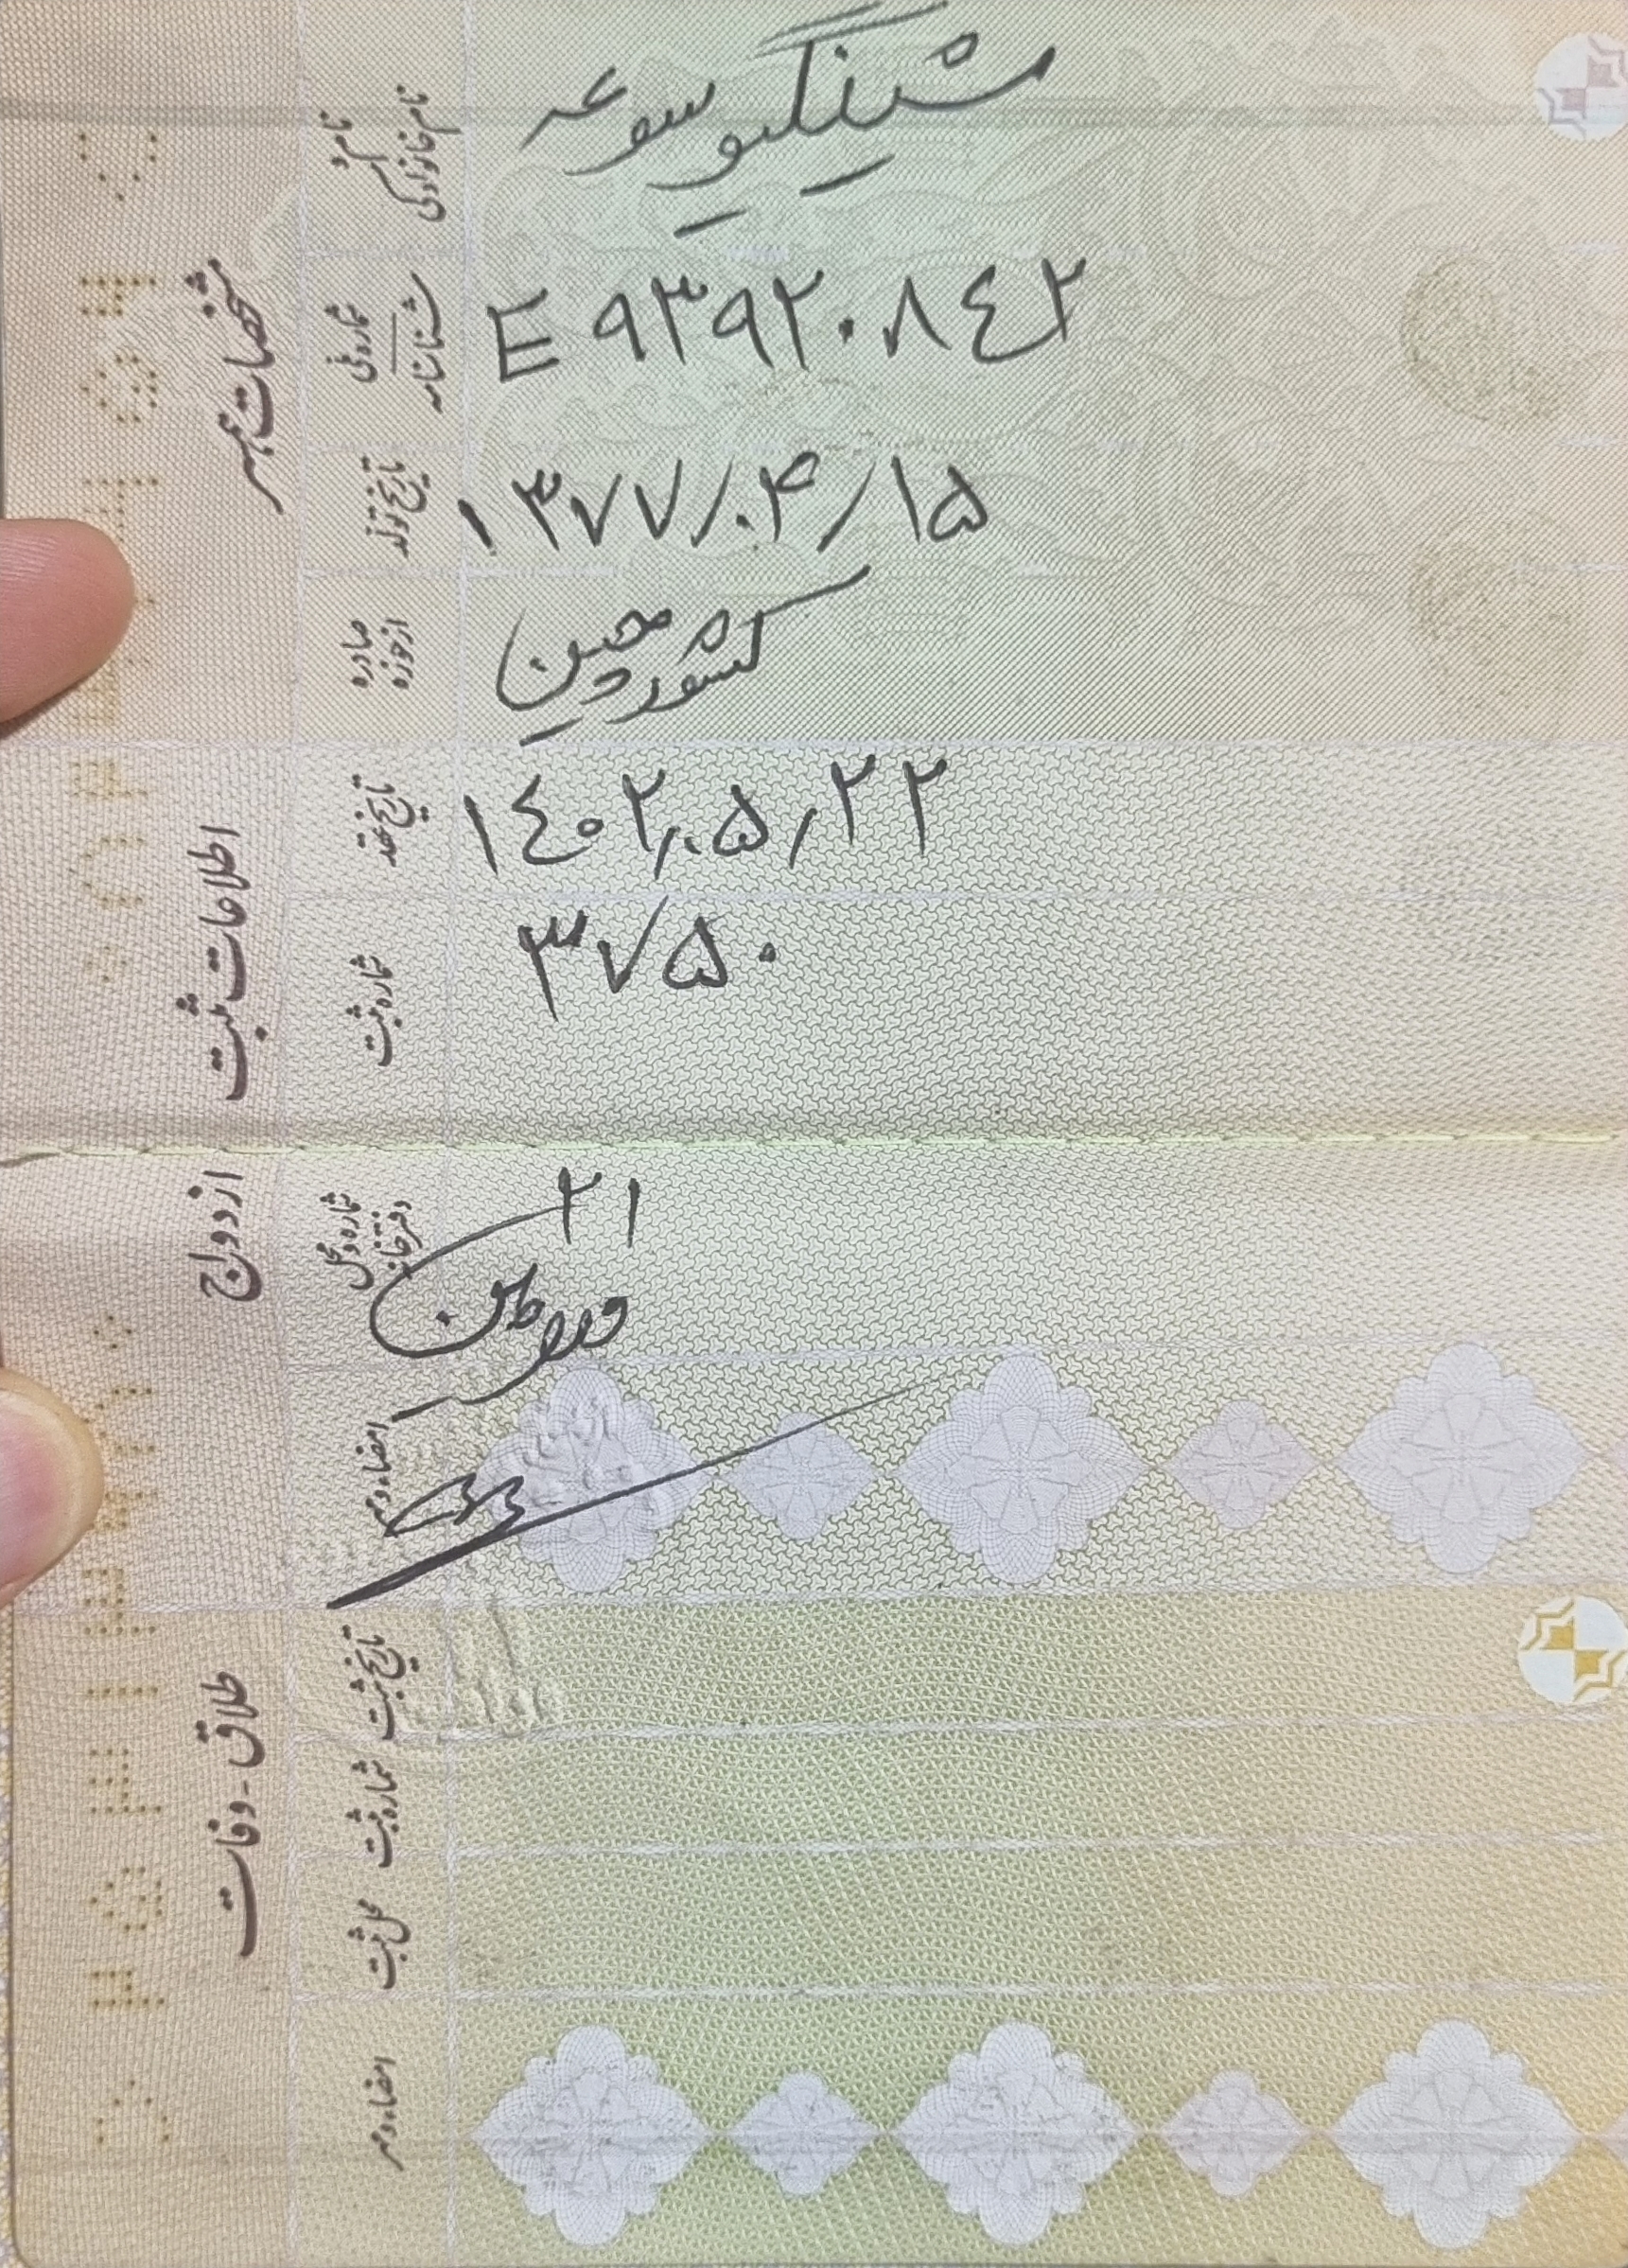 مشخصات همسر
نام و
نام خانوادگی
شماره ملی
شناسنامه
E ۹۳۹۲۰۸٤۲
تاریخ تولد
۱۳۷۷/۰۴/۱۵
صادره
از حوزه
کشور چین
اطلاعات ثبت
تاریخ عقد
۱٤۰۲/۰۵/۲۲
شماره ثبت
۳۷۵۰
ازدواج
شماره و محل
دفترخانه
۲۱
امضاء و مهر
طلاق - وفات
تاریخ ثبت
شماره ثبت
محل ثبت
امضاء و مهر